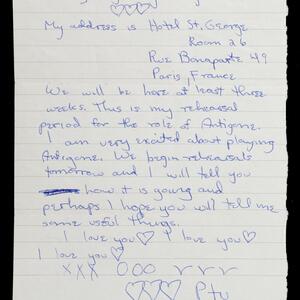 My address is Hotel St. George
Room 26
Rue Bonaparte 49
Paris, France
We will be here at least three
weeks. This is my rehearsal
period for the role of Antigone.
I am very excited about playing
Antigone. We begin rehearsals
tomorrow and I will tell you
how it is going and
perhaps I hope you will tell me
some useful things.
I love you♡ I love you♡
I love you♡
XXX OOO
♡♡♡